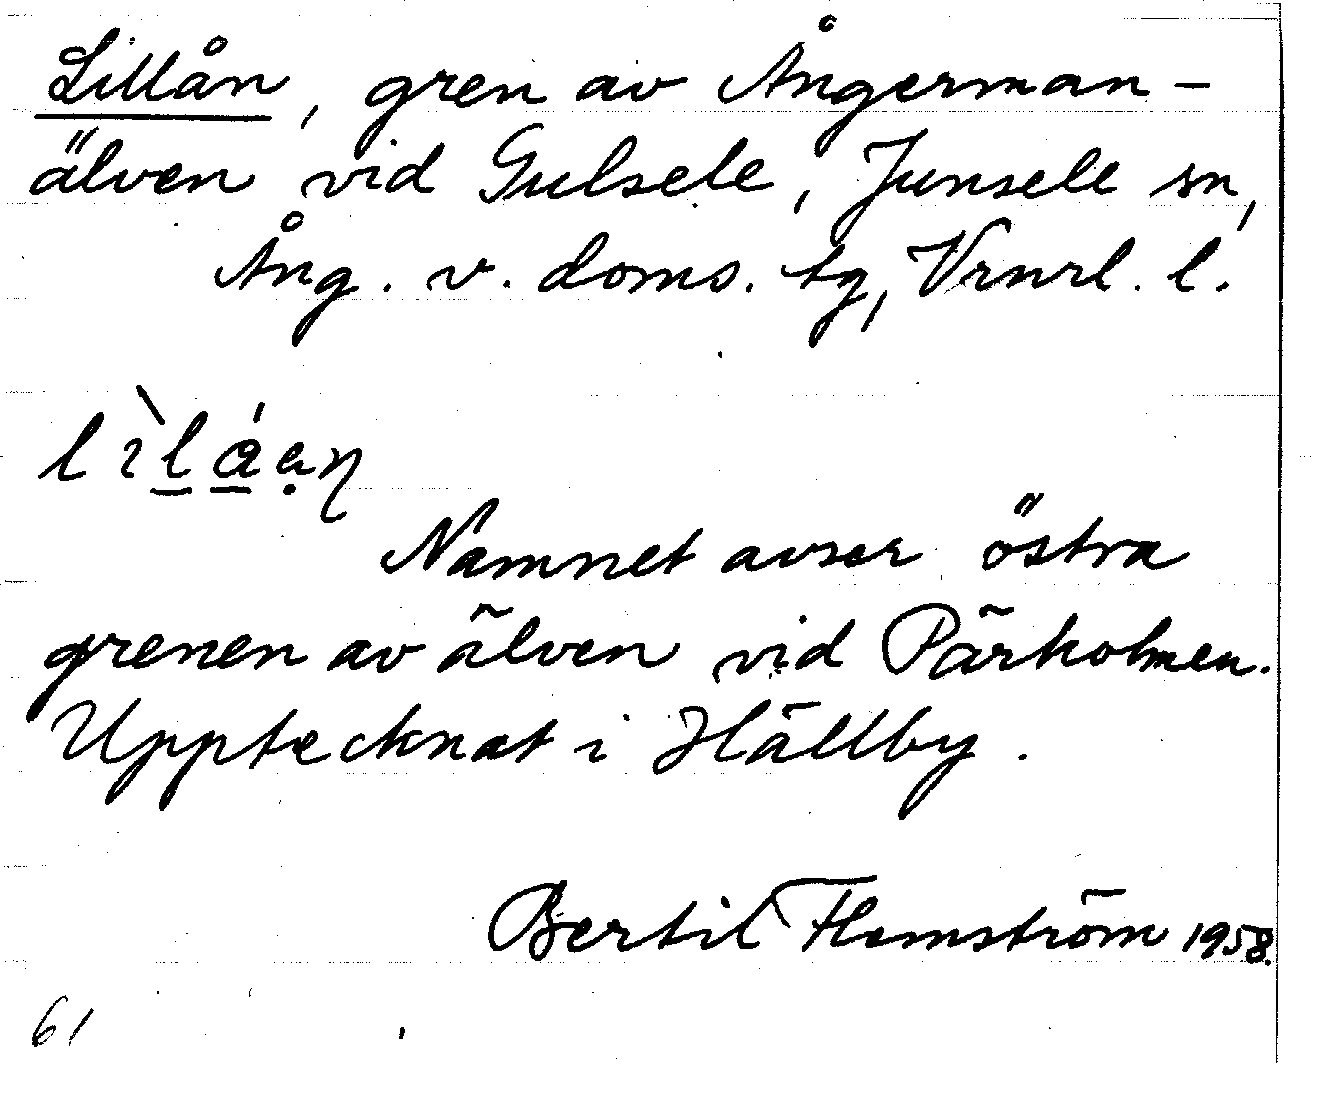 Lillån, gren av Ångerman-
älven vid Gulsele, Junsele sn,
Ång. v. doms. tg, Vrnrl. l.
Namnet avser östra
grenen av älven vid Pärholmen.
Upptecknat i Hällby.
Bertil Flemström 1958.
61